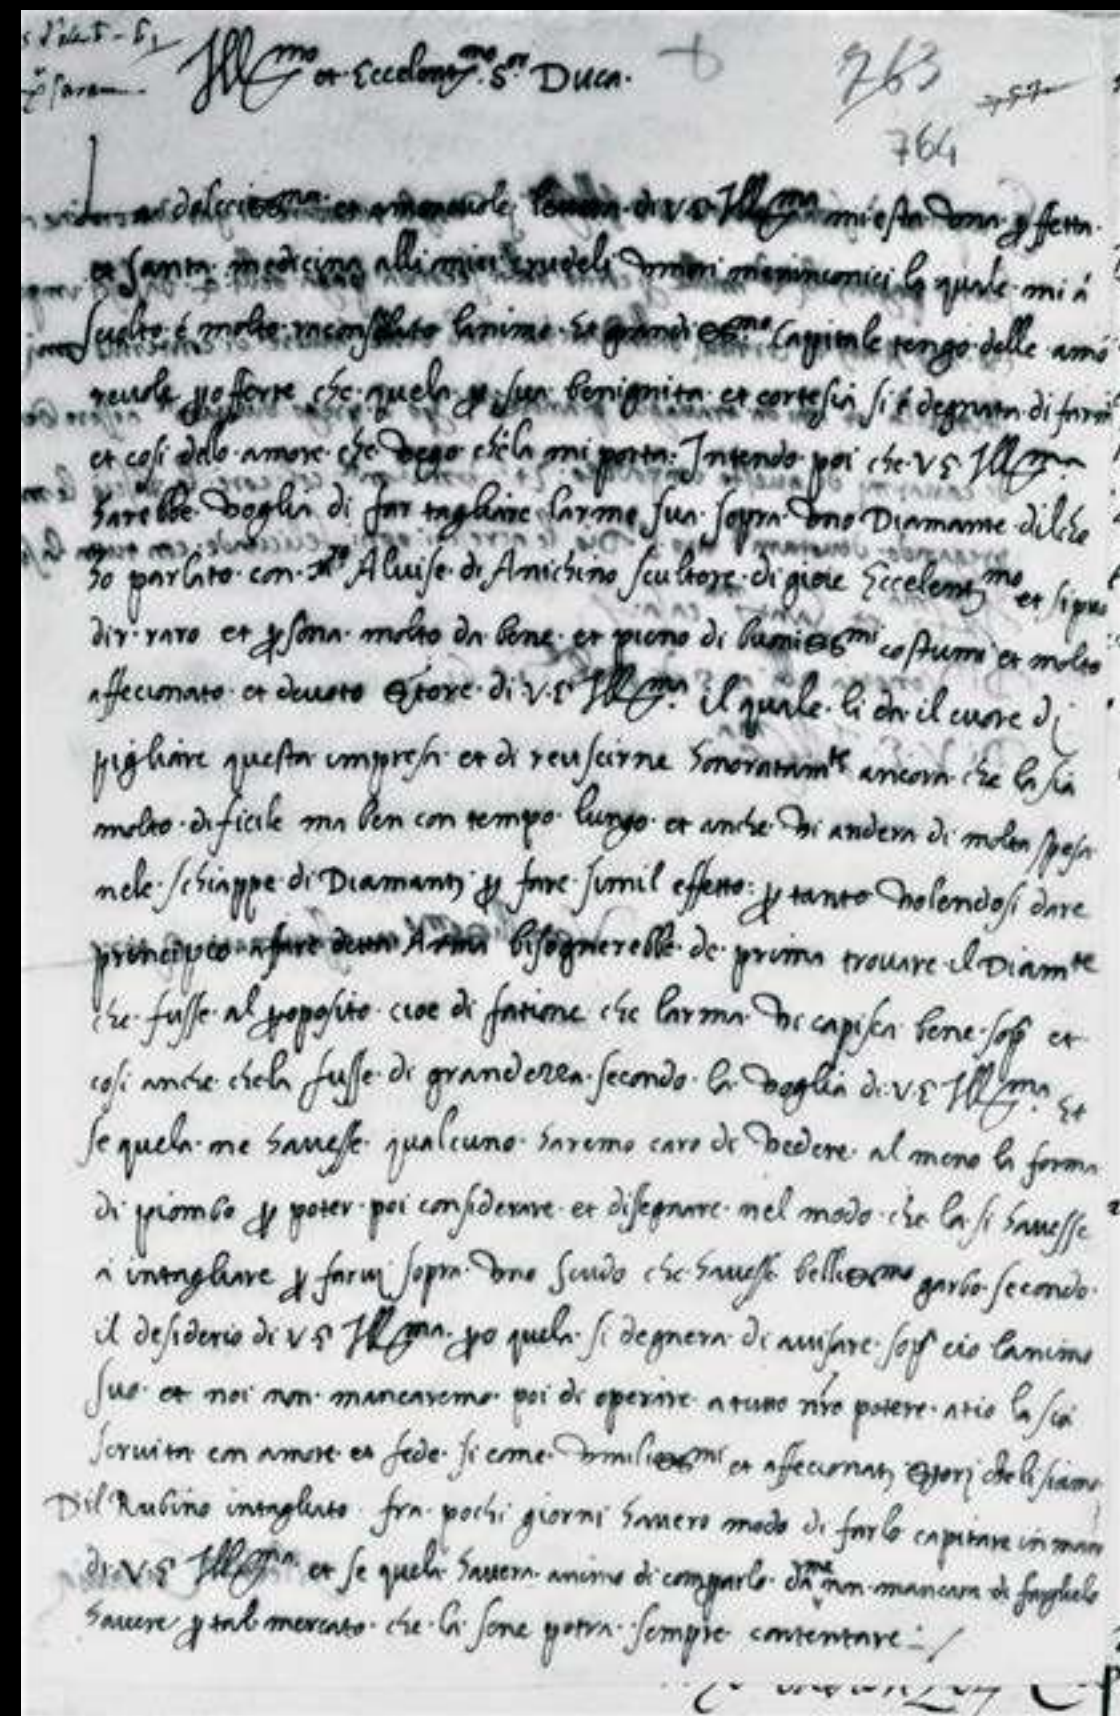 Ill^mo et Eccelent^mo S^or Duca.
763
757
764
La dolcissma et amorevole lettera di V S Ill^ma mi è sta una p fetta
et santa medicina alli miei crudeli umori meninconici la quale mi à
sculto é molto riconsolato lanimo Et grandiss^mo Capitale tengo delle amo
revole p offerte che quela p sua benignita et cortesia si è degnata di farmi
et cosi delo amore che vego chela mi porta. Intendo poi che V S Ill^ma
harebbe voglia di far tagliare larme sua sopra uno Diamante dilche
ho parlato con M^ro Aluise di Anichino scultore di gioie Eccelent^mo et si puo
dir raro et p sona molto da bene et pieno di buniss^mi costumi et molto
affecionato et devoto S tore di V S Ill^ma il quale li da il cuore di
pigliare questa impresa et di reuscirne honoratam^te ancora che la sia
molto dificile ma ben con tempo lungo et anche vi andera di molta spesa
nele schiappe di Diamanti p fare simil effetto: p tanto volendosi dare
principio a fare detta Arma bisognerebbe de prima trovare il Diam^te
che fusse al p oposito cioe di fatione che larma vi capisca bene sop^a et
cosi anche chela fusse di grandezza secondo la voglia di V S Ill^ma Et
se quela ne havesse qualcuno haremo caro di vedere al meno la forma
di piombo p poter poi considerare et disegnare nel modo che la si havesse
a intagliare p farvi sopra uno scudo che havesse belliss^mo garbo secondo
il desiderio di V S Ill^ma p o quela si degnera di avisare sop^a cio lanimo
suo et noi non mancaremo poi di operare a tutto nro potere atio la sia
servita con amore et fede si come umiliss^mi et affecionati S tori cheli siamo
Dil Rubino intagliato fra pochi giorni havero modo di farlo capitare in man
di V S Ill^ma et se quela havera animo di comparlo da me non mancara di farglielo
havere p tal mercato che la sene potra sempre contentare